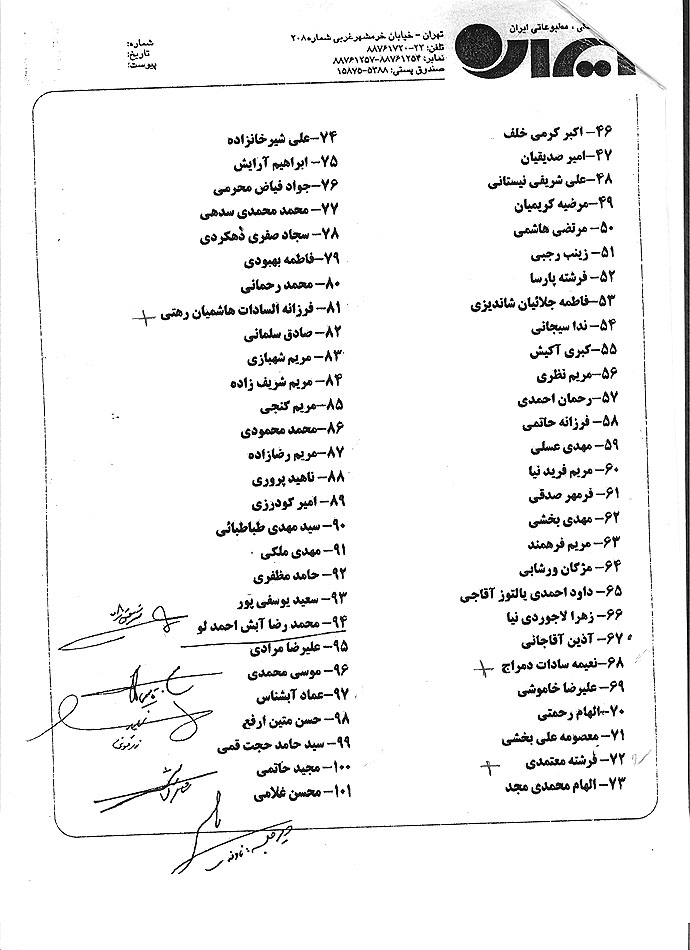 ، مطبوعاتی ایران
ایران
تهران - خیابان خرمشهر غربی شماره ۲۰۸
تلفن: ۲۲-۸۸۷۶۱۷۲۰
نمابر: ۸۸۷۶۱۲۵۴-۸۸۷۶۱۲۵۷
صندوق پستی: ۵۳۸۸-۱۵۸۷۵
شماره:
تاریخ:
پیوست:
۴۶- اکبر کرمی خلف
۴۷-امیر صدیقیان
۴۸-علی شریفی نیستانی
۴۹-مرضیه کریمیان
۵۰- مرتضی هاشمی
۵۱- زینب رجبی
۵۲- فرشته پارسا
۵۳-فاطمه جلائیان شاندیزی
۵۴- ندا سیجانی
۵۵-کبری آکیش
۵۶-مریم نظری
۵۷-رحمان احمدی
۵۸- فرزانه حاتمی
۵۹- مهدی عسلی
۶۰- مریم فرید نیا
۶۱- فرمهر صدقی
۶۲- مهدی بخشی
۶۳- مریم فرهمند
۶۴- مژگان ورشابی
۶۵- داود احمدی یالتوز آقاجی
۶۶- زهرا لاجوردی نیا
۶۷- آذین آقاجانی
۶۸-نعیمه سادات دمراج
۶۹- علیرضا خاموشی
۷۰-الهام رحمتی
۷۱- معصومه علی بخشی
۷۲- فرشته معتمدی
۷۳- الهام محمدی مجد
۷۴-علی شیرخانزاده
۷۵- ابراهیم آرایش
۷۶-جواد فیاض محرمی
۷۷- محمد محمدی سدهی
۷۸- سجاد صفری دهکردی
۷۹-فاطمه بهبودی
۸۰- محمد رحمانی
۸۱- فرزانه السادات هاشمیان رهتی
۸۲- صادق سلمانی
۸۳-مریم شهبازی
۸۴- مریم شریف زاده
۸۵-مریم گنجی
۸۶-محمد محمودی
۸۷-مریم رضازاده
۸۸- ناهید پروری
۸۹- امیر گودرزی
۹۰- سید مهدی طباطبائی
۹۱- مهدی ملکی
۹۲- حامد مظفری
۹۳- سعید یوسفی پور
۹۴- محمد رضا آبش احمد لو
۹۵- علیرضا مرادی
۹۶- موسی محمدی
۹۷-عماد آبشناس
۹۸- حسن متین ارفع
۹۹- سید حامد حجت قمی
۱۰۰- مجید حاتمی
۱۰۱- محسن غلامی